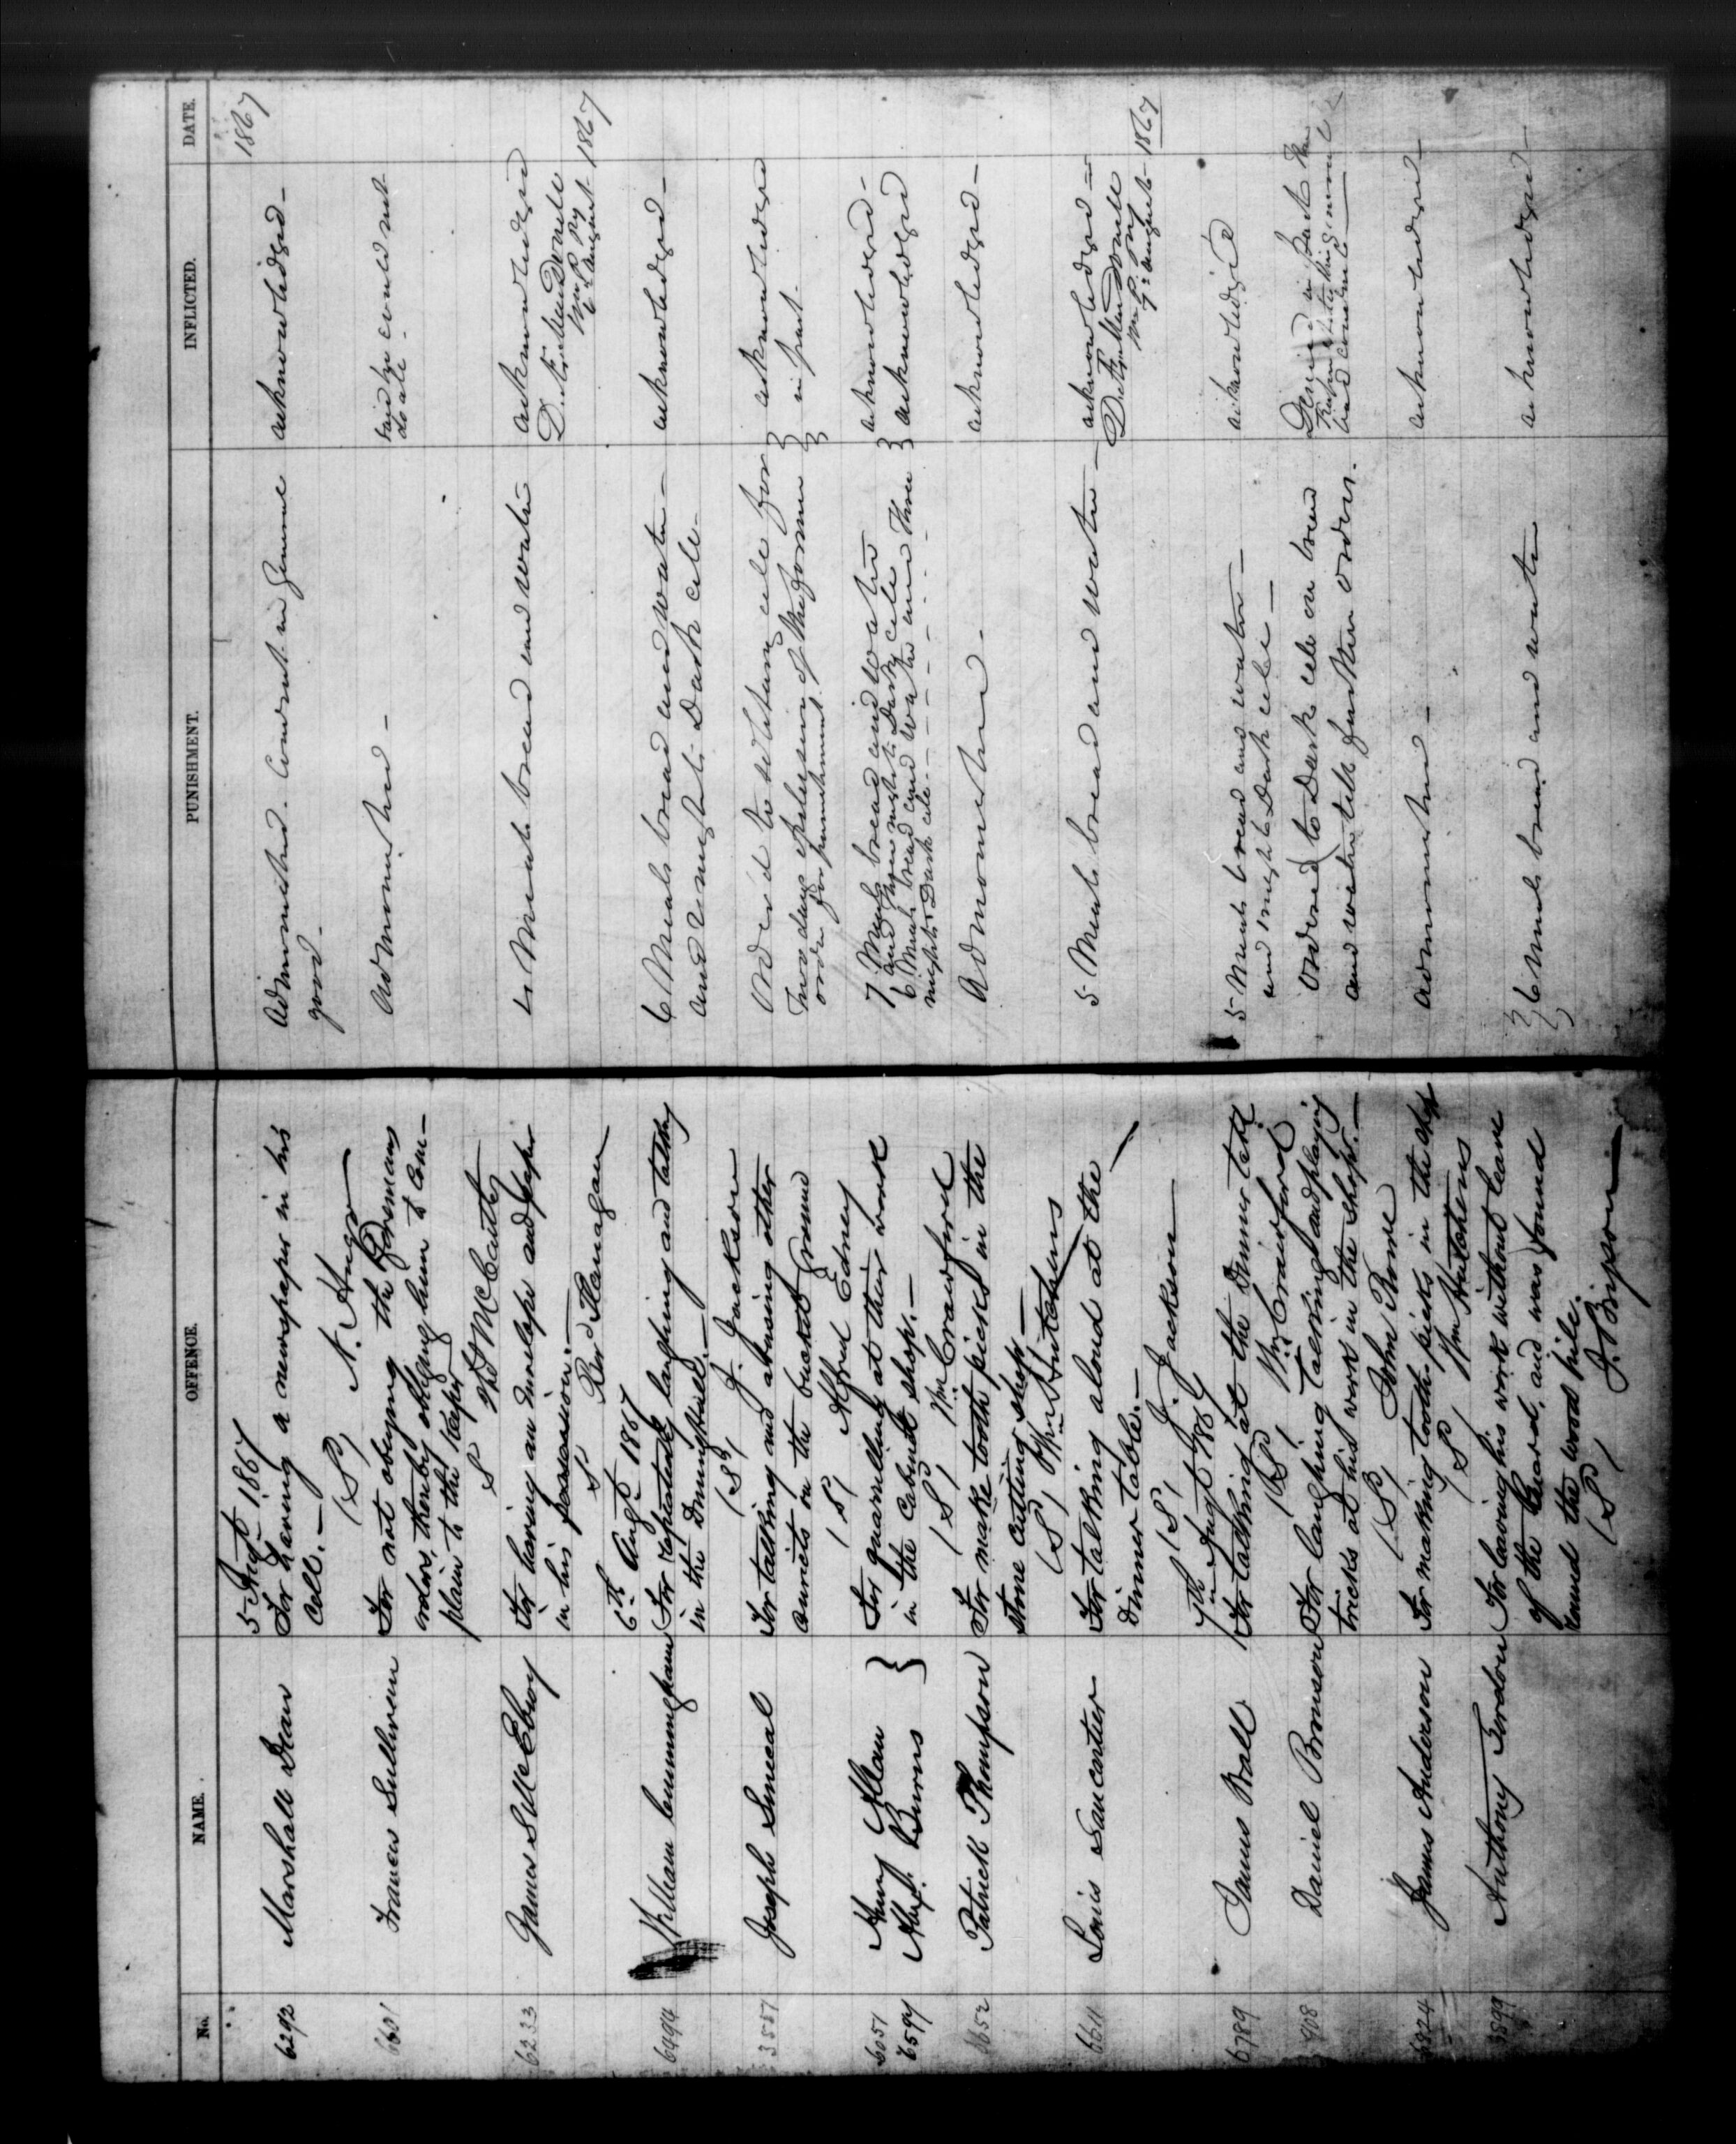 No. NAME. OFFENCE. PUNISHMENT. INFLICTED. DATE.
5 Augt 1867
1867
6292 Marshall Dean For having a newspaper in his Admonished. Conduct in General acknowledged-
cell.- good-
(S) N. Anger
6601 Frances Sullivan For not obeying the Foremans Admonished- said he could not
orders, thereby obliging him to com- do all-
plain to the Keeper
S Thos McCarthy
6233 James S McEbroy For having an envelope and paper 4 Meals bread and water acknowledged
in his possession.- D. Æ. MacDonell
S Rird Flanagan
6 August 1867
6th Augt 1867
6494 William Cunningham For repeatedly laughing and talking 6 Meals bread and water- acknowledged-
in the Dining Hall.- and 2 nights Dark cell-
(S) J. Jackson
3557 Joseph Senecal For talking and abusing other Order'd to solitary cell for acknowledged
convicts on the bucket ground Two days of the former in part-
(S) Alfred Edney order for punishment.
6051 Henry Allan For quarrelling at their work 7 Meals bread and water acknowledged-
6594 Alexr. Burns in the Cabinet shop.- and nights Dark cell
6 Meals bread and water and Three acknowledged
nights Dark cell-
(S) Wm Crawford
6652 Patrick Thompson For make tooth picks in the Admonished- acknowledged-
stone cutting shop-
(S) Wm Hutchens
6611 Louis Sancartier For talking aloud at the 5 Meals bread and water- acknowledged-
Dinner table.- D. Æ. MacDonell
(S) J. Jackson
7 August 1867
7th Augt 1867
6789 James Ball For talking at the Dinner table 5 Meals bread and water- acknowledged
and nights Dark cell-
(S) Wm Crawford
Daniel Bronson For laughing talking and playing Ordered to Dark cell on bread Denied in part the
tricks at his work in the shop.- and water till further orders.
(S) John Rowe
James Anderson For making tooth picks in the shop admonished- acknowledged-
(S) Wm Hutchens
Anthony Jordon For leaving his work without leave 6 Meals bread and water acknowledged-
of the Guard, and was found
round the wood pile.
(S) J. Bipson